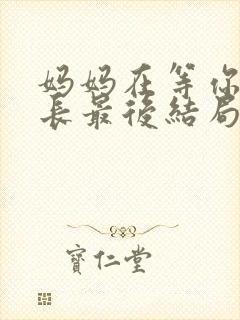 妈妈在等你
長最後結局
寶仁堂